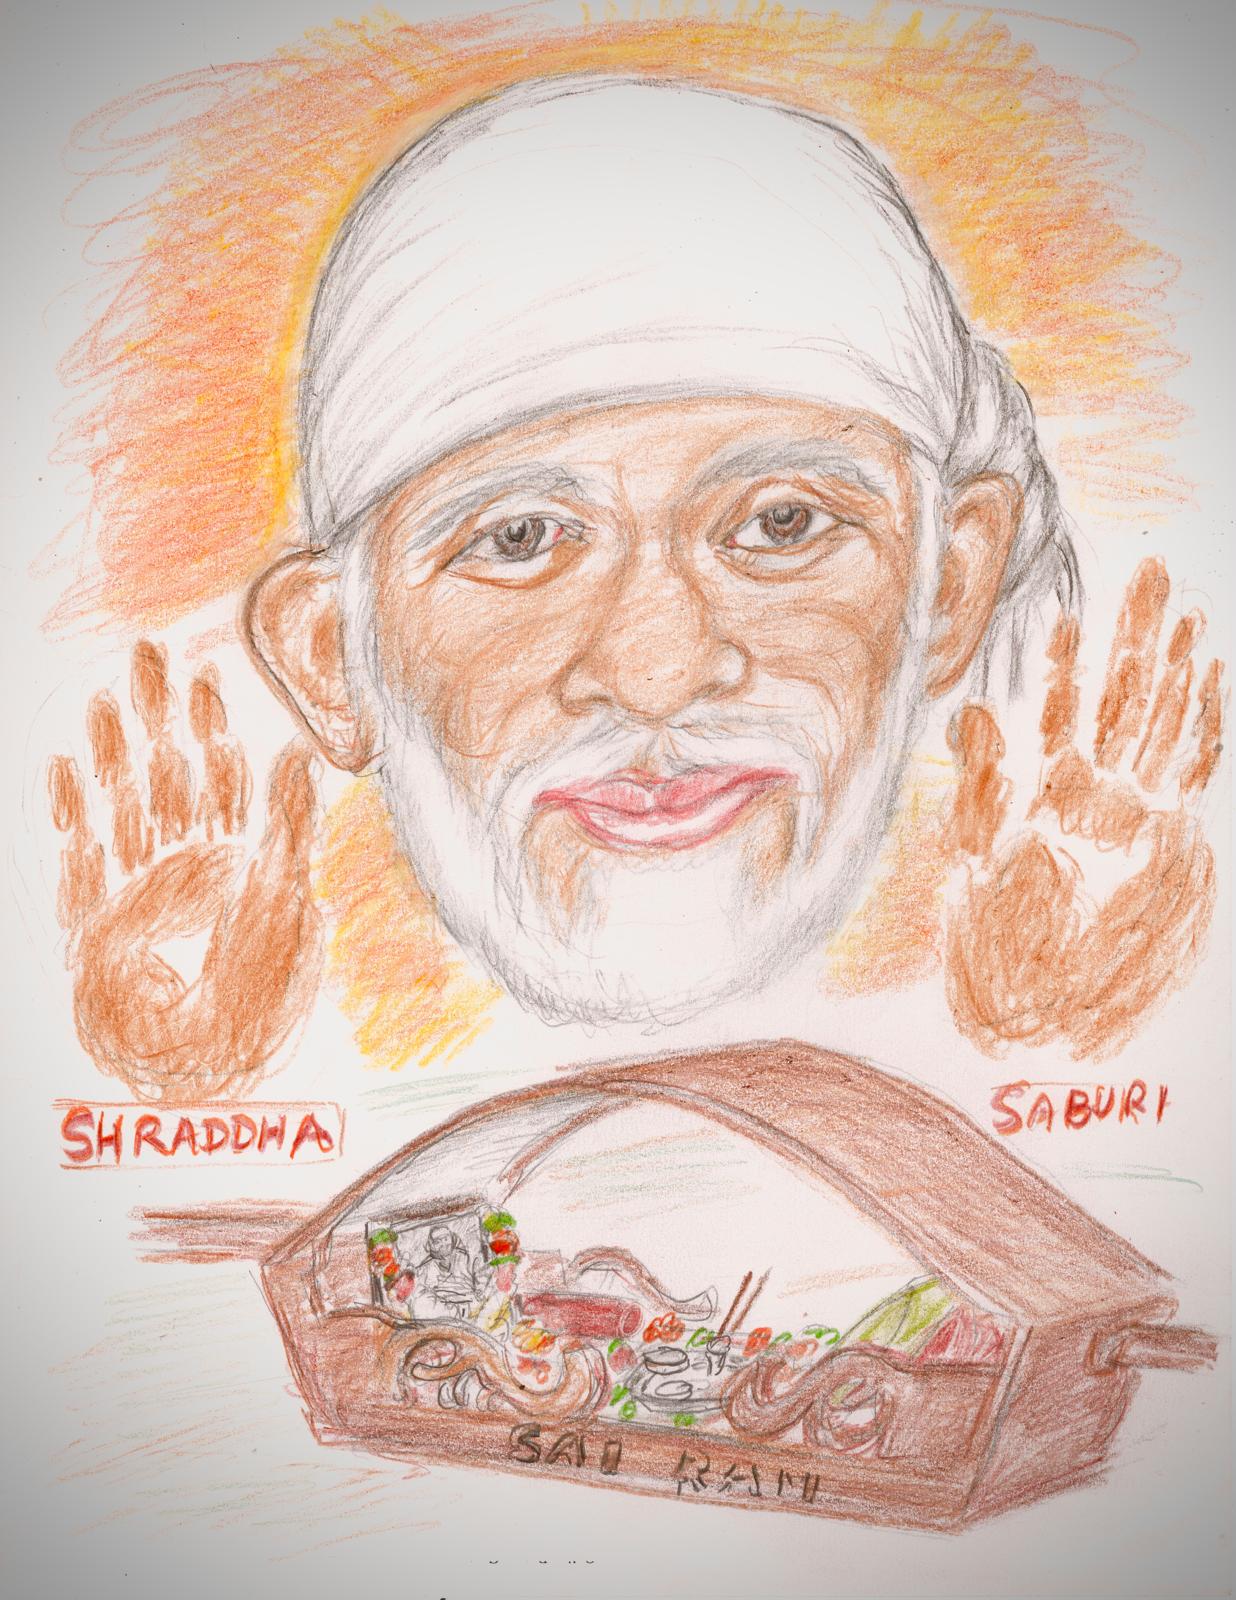 SHRADDHA
SABURI
SAI RAM